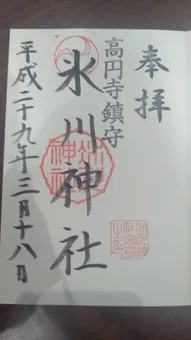 奉拝
高円寺鎮守
氷川神社
平成二十九年三月十八日